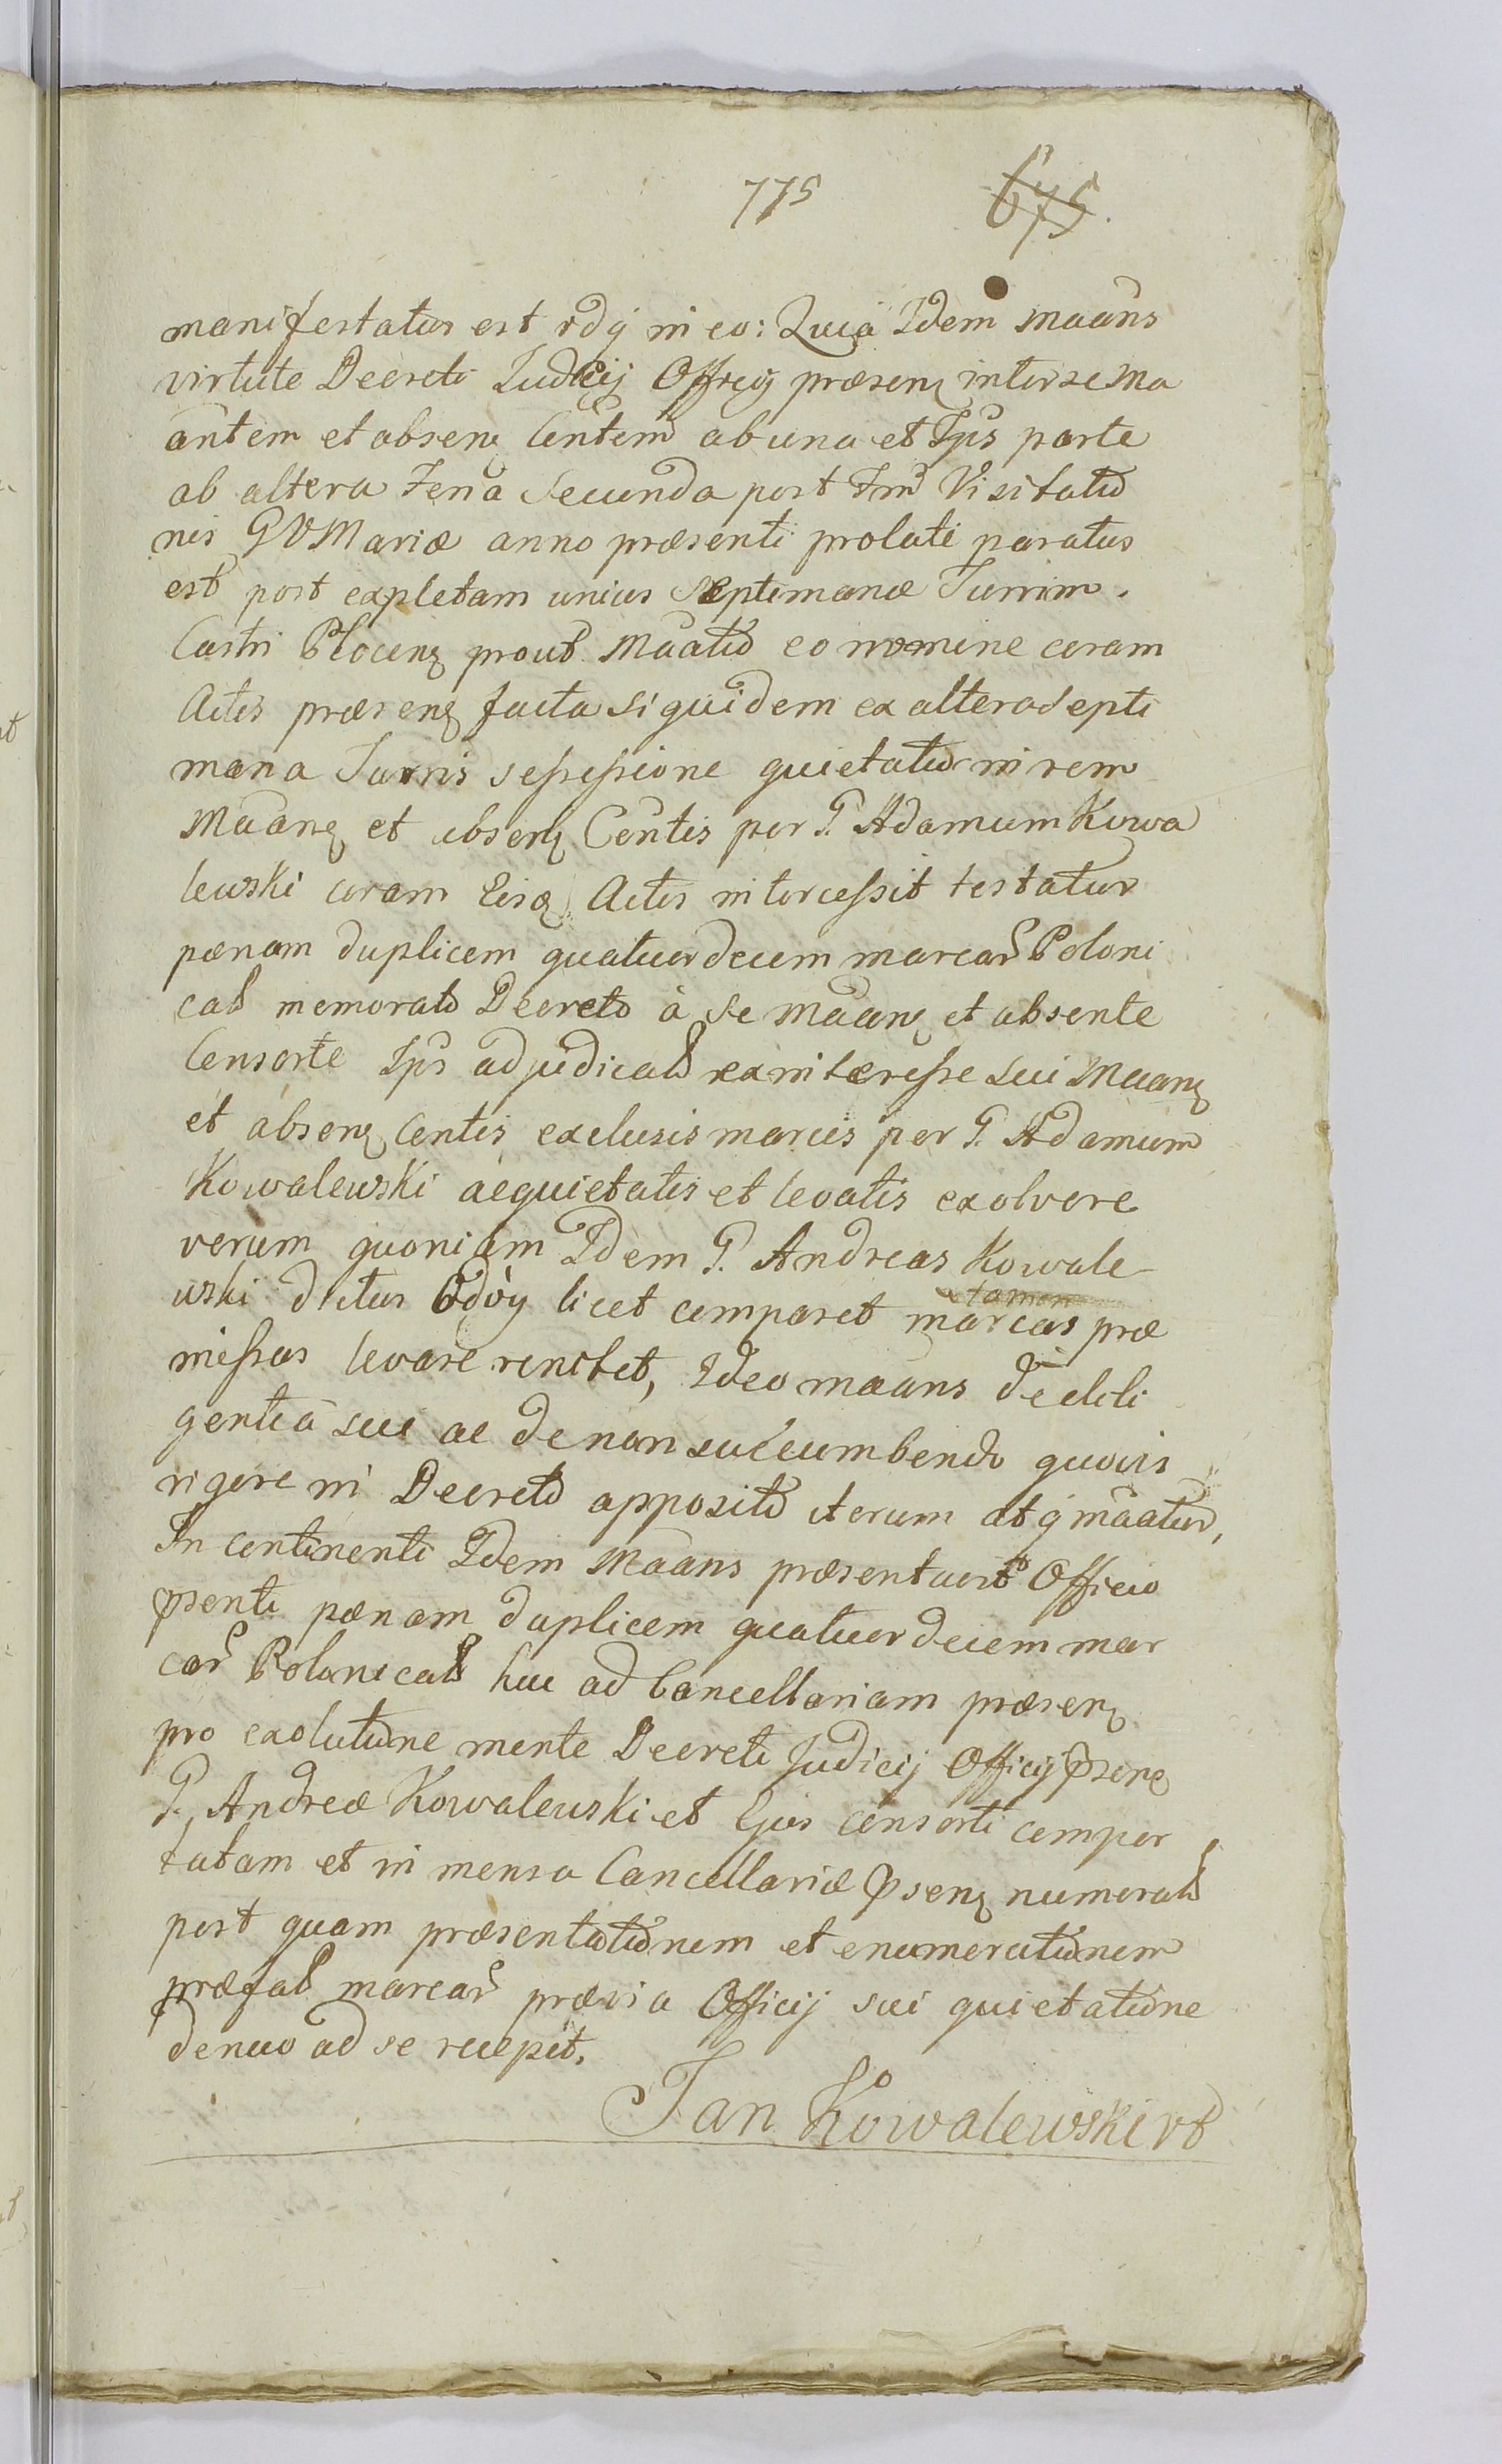 775 675.
manifestatus est idq in eo: Quia Idem maāns
virtute Decreti Judicij Officij præsenę inter se Ma
āntem et absenę Cōntem ab una et Ips parte
ab altera Feria Secunda post Fm̄ Visitatio
nis GVMariæ anno præsenti prolati paratus
est post expletam unius Septimanæ Turrim.
Castri Plocenę prout Māatio eo nomine coram
Actis præsenę facta siquidem ex altera Septi
mana Turris sessessione quietatio in rem
Māanę et absenę Contis per G. Adamum Kowa
lewski coram Eisę Actis intercessit testatur
pænam duplicem quatuordecem marcar Poloni
cal memorato Decreto à se Māanę et absente
Consorte Ips adjudical ex interesse sui Maanę
et absenę Contis exclusis marcis per G. Adamum
Kowalewski aequietatis et levatis exolvere
verum quoniam Idem G. Andreas Kowale
wski dictus licet comparet tamen marcas præ
missas levare renitet, Ideo maans de dili
gentia sui ac de non succumbendo quovis
rigore in Decreto apposito iterum atq māatur,
In continenti Idem Maans præsentavit Officio
psenti pænam duplicem quatuordecem mar
car Polonical huc ad Cancellariam præsenę
pro exolutione mente Decreti Judicij Officij Psenę
G. Andreæ Kowalewski et Ejus consorti compor
tatam et in mensa Cancellariæ Psenę numeral
post quam præsentationem et enumerationem
præfal marcar prævia Officij sui quietatione
denuo ad se recepit.
Jan Kowalewski